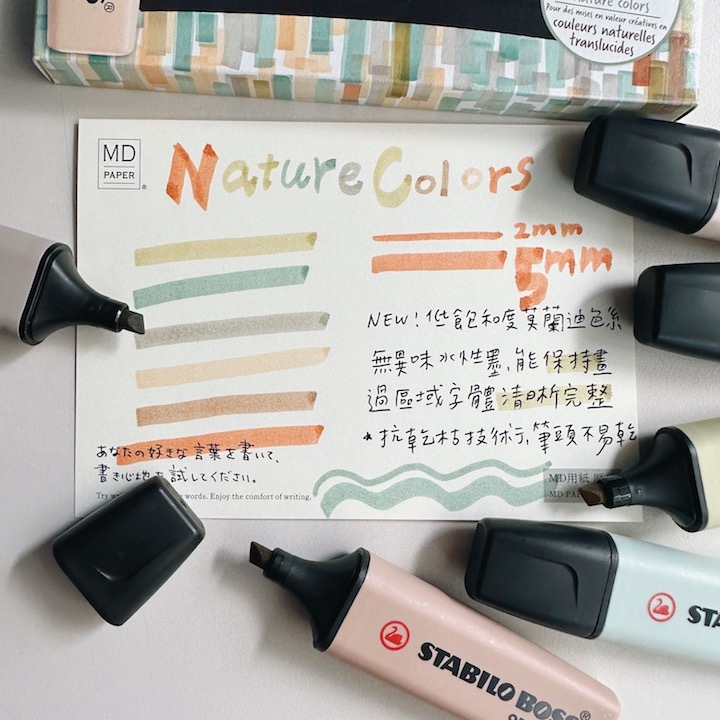 nature colors
Pour des mises en valeur créatives en
couleurs naturelles
translucides
MD
PAPER
Nature Colors
2mm
5mm
NEW!低飽和度莫蘭迪色系
無異味水性墨,能保持畫
過區域字體清晰完整
*抗乾枯技術,筆頭不易乾
あなたの好きな言葉を書いて、
書き心地を試してください。
Try words. Enjoy the comfort of writing.
MD用紙
MD
STABILO BOSS
STA